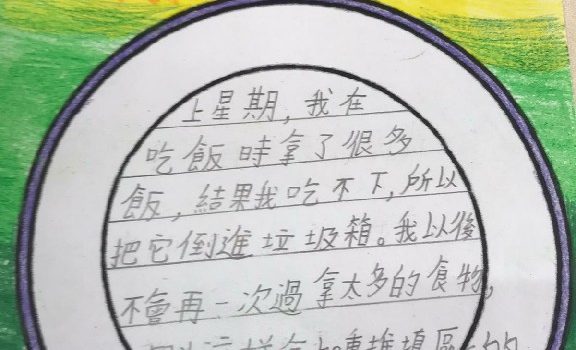 上星期，我在
吃飯時拿了很多
飯，結果我吃不下，所以
把它倒進垃圾箱。我以後
不會再一次過拿太多的食物，
這樣會堆填區的